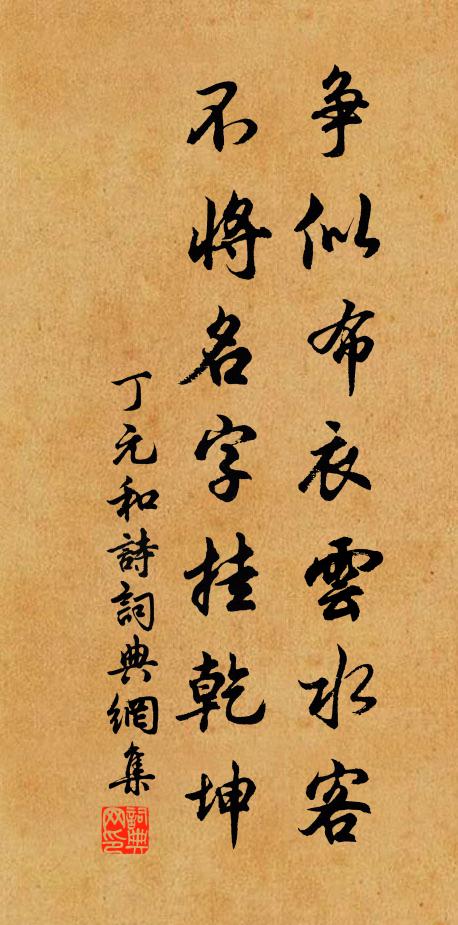 争似布衣雲水客
不將名字挂乾坤
丁元和詩詞典網集
詞典網印